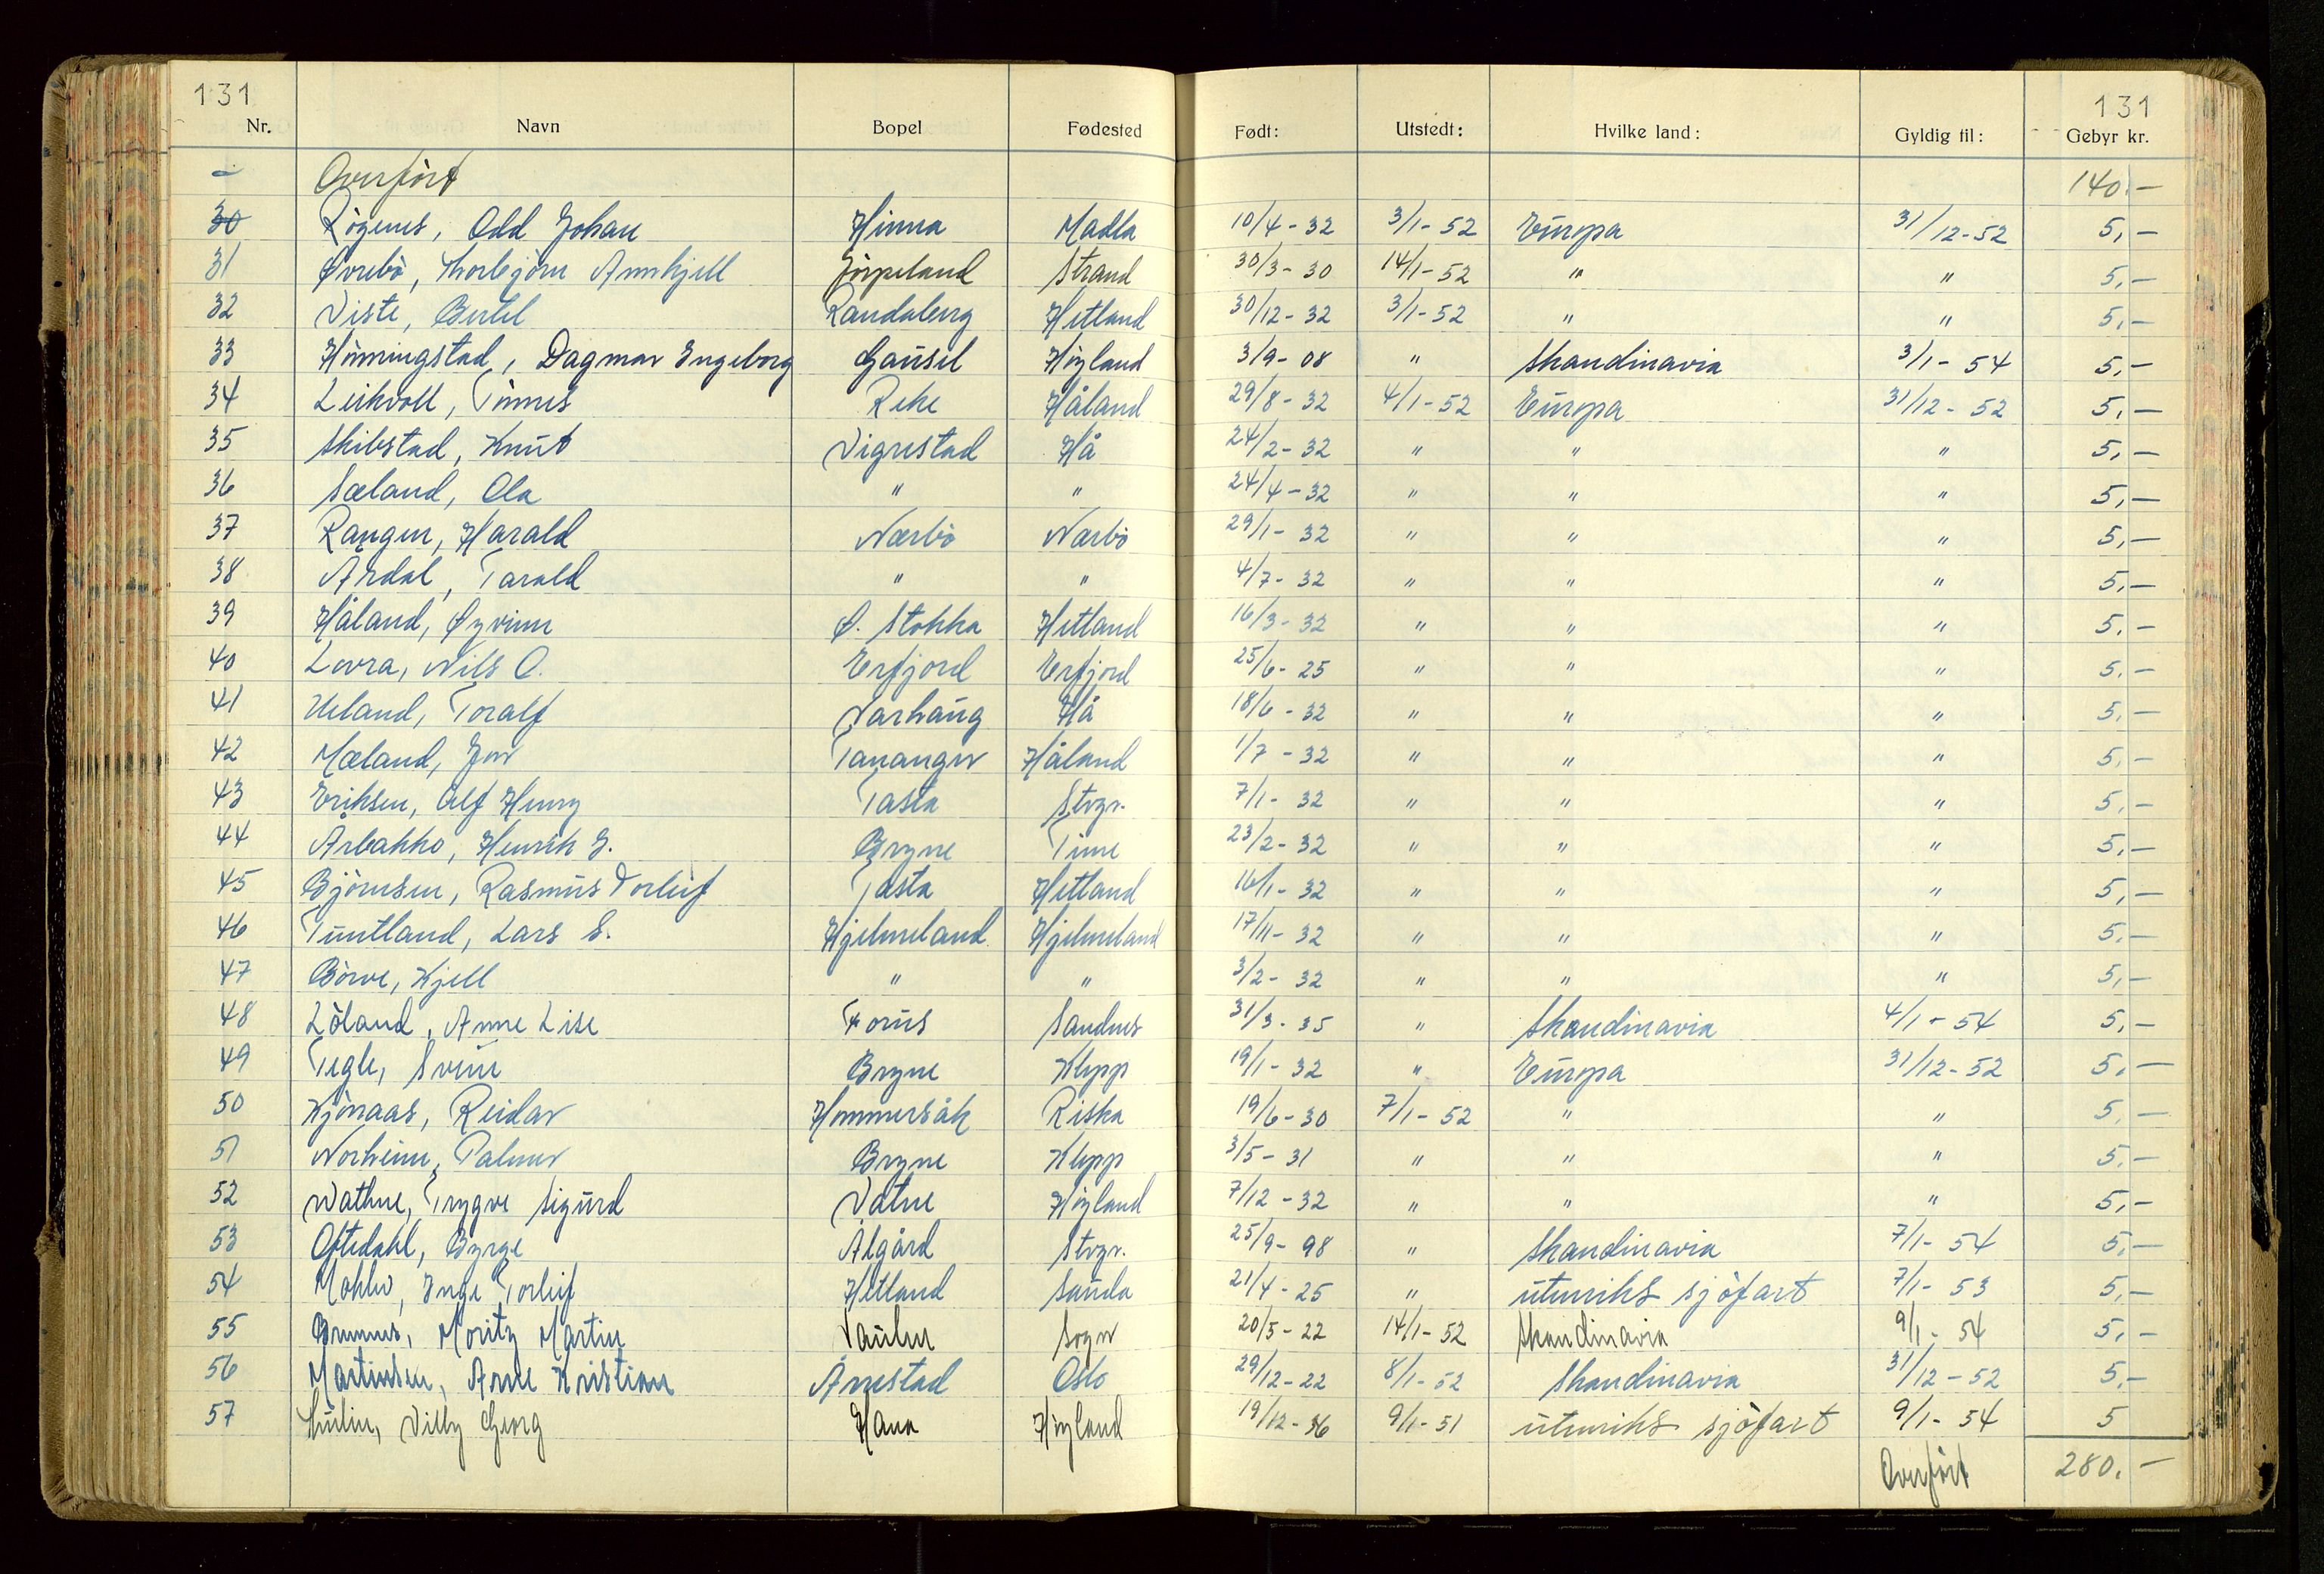 131 131
Nr. Navn Bopel Fødested Født: Utstedt: Hvilke land: Gyldig til: Gebyr kr.
— Overført 140.—
30 Rögenes, Odd Johan Hinna Madla 10/4-32 3/1-52 Europa 31/12-52 5,-
31 Øvrebö, Thorbjörn Annkjell Jörpeland Strand 30/3-30 14/1-52 " " 5,-
32 Viste, Bertel Randaberg Hetland 30/12-32 3/1-52 " " 5,-
33 Hönningstad, Dagmar Ingeborg Gausel Höyland 3/9-08 " Skandinavia 3/1-54 5,-
34 Leikvoll, Tönnes Reke Håland 29/8-32 4/1-52 Europa 31/12-52 5,-
35 Skibstad, Knut Vigrestad Hå 24/2-32 " " " 5,-
36 Sæland, Ola " " 24/4-32 " " " 5,-
37 Haraldd Nærbö Nærbö 29/1-32 " " " 5,-
38 Årdal, Tarald " " 4/7-32 " " " 5,-
39 Håland, Øyvinn Ø. Stokka Hetland 16/3-32 " " " 5,-
40 Lovra, Nils O. Erfjord Erfjord 25/6-25 " " " 5,-
41 Ueland, Toralf Varhaug Hå 18/6-32 " " " 5,-
42 Mæland, Jon Tananger Håland 1/7-32 " " " 5,-
43 Eriksen, Alf Henry Tasta Stvgr. 7/1-32 " " " 5,-
44 Årbakko, Henrik J. Bryne Time 23/2-32 " " " 5,-
45 Björnsen, Rasmus Torleif Tasta Hetland 16/1-32 " " " 5,-
46 Tuntland, Lars S. Hjelmeland Hjelmeland 17/11-32 " " " 5,-
47 Börve, Kjell " " 3/2-32 " " " 5,-
48 Löland, Anne Lise Forus Sandnes 31/3-35 " Skandinavia 4/1-54 5,-
49 Tegle, Svein Bryne Klepp 19/1-32 " Europa 31/12-52 5,-
50 Kjönaas, Reidar Hommersåk Riska 19/6-30 7/1-52 " " 5,-
51 Norheim, Palmer Bryne Klepp 3/5-31 " " " 5,-
52 Wathne, Trygve Sigurd Vatne Höyland 7/12-32 " " " 5,-
53 Oftedahl, Byrge Ålgård Stvgr. 25/9-98 " Skandinavia 7/1-54 5,-
54 Inge Torleif Hetland Sauda 21/4-25 " utenriks sjöfart 7/1-53 5,-
55 Moritz Martin Vaulen Sogn 20/5-22 14/1-52 Skandinavia 9/1-54 5,-
56 Martinsen, Arne Kristian Årrestad Oslo 29/12-22 8/1-52 Skandinavia 31/12-52 5,-
57 Willy Georg Hana Höyland 19/12-36 9/1-51 utenriks sjöfart 9/1-54 5
Overført 280.-